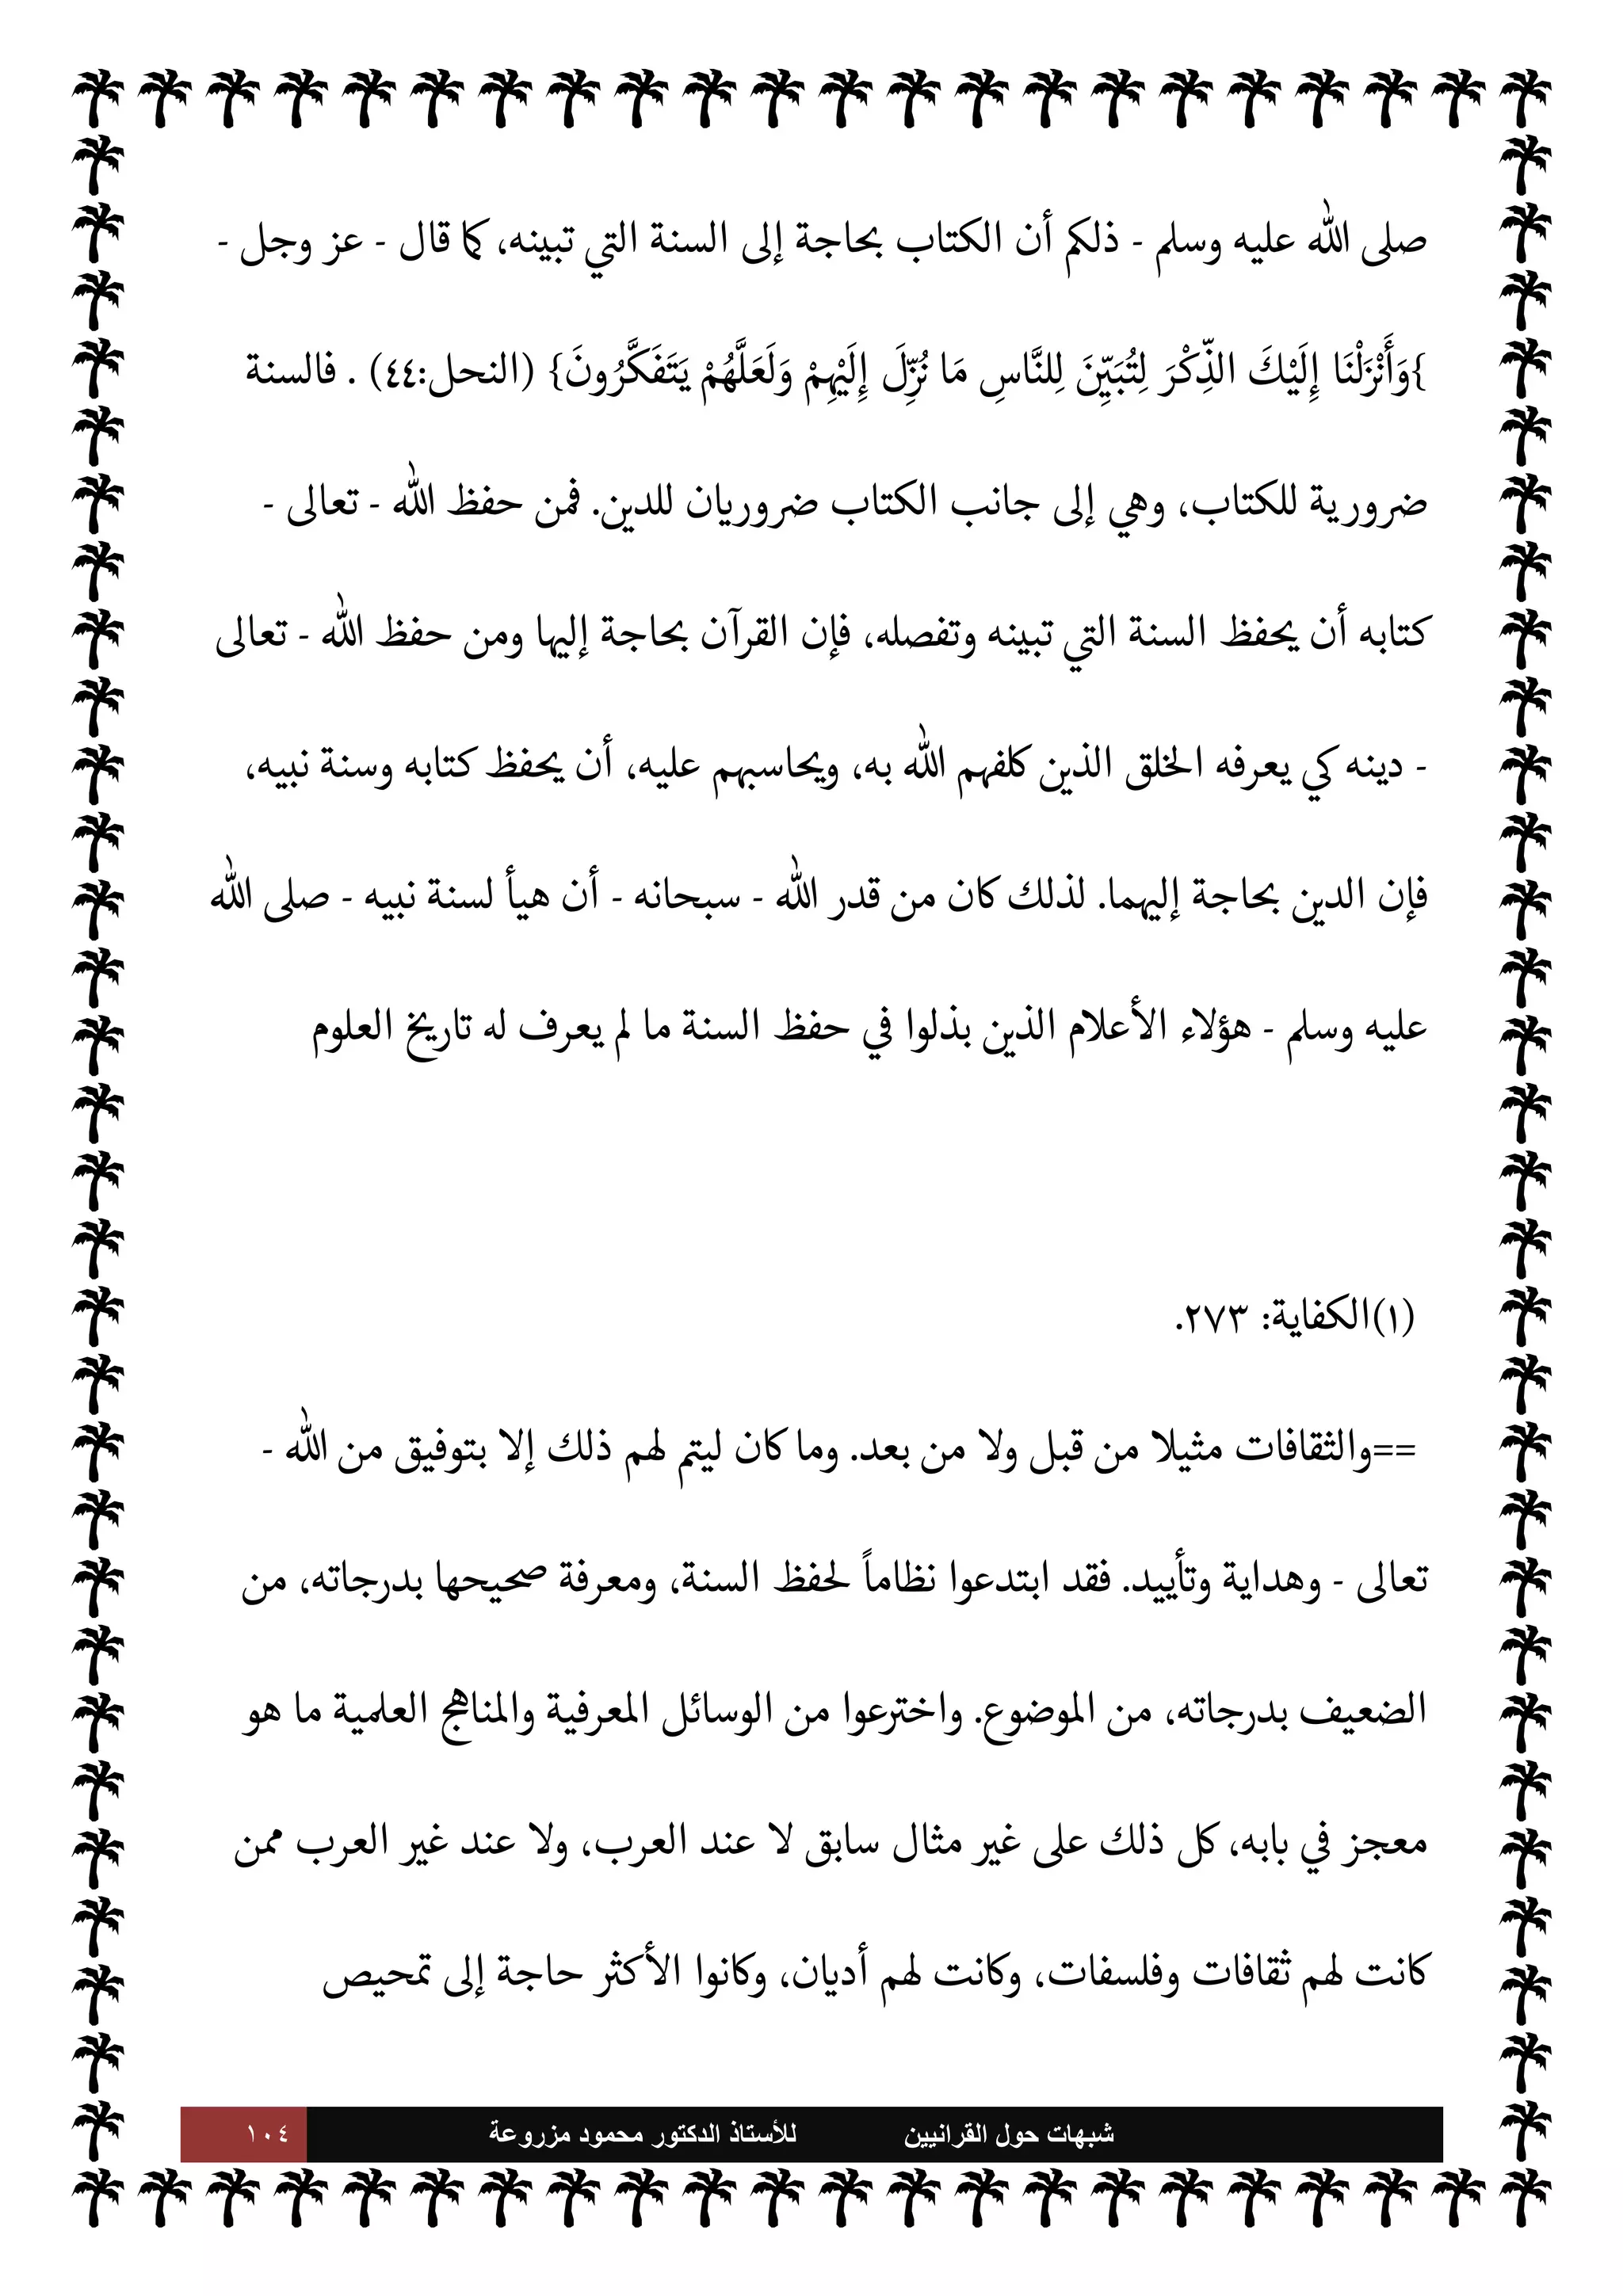 صلى الله عليه وسلم - ذلكم أن الكتاب بحاجة إلى السنة التي تبينه، كما قال - عز وجل -
{وَأَنْزَلْنَا إِلَيْكَ الذِّكْرَ لِتُبَيِّنَ لِلنَّاسِ مَا نُزِّلَ إِلَيْهِمْ وَلَعَلَّهُمْ يَتَفَكَّرُونَ} (النحل:٤٤) . فالسنة
ضرورية للكتاب، وهي إلى جانب الكتاب ضروريان للدين. فمن حفظ الله - تعالى -
كتابه أن يحفظ السنة التي تبينه وتفصله، فإن القرآن بحاجة إليها ومن حفظ الله - تعالى
- دينه كي يعرفه الخلق الذين كلفهم الله به، ويحاسبهم عليه، أن يحفظ كتابه وسنة نبيه،
فإن الدين بحاجة إليهما. لذلك كان من قدر الله - سبحانه - أن هيأ لسنة نبيه - صلى الله
عليه وسلم - هؤلاء الأعلام الذين بذلوا في حفظ السنة ما لم يعرف له تاريخ العلوم
(١)الكفاية: ٢٧٣.
==والثقافات مثيلا من قبل ولا من بعد. وما كان ليتم لهم ذلك إلا بتوفيق من الله -
تعالى - وهداية وتأييد. فقد ابتدعوا نظاماً لحفظ السنة، ومعرفة صحيحها بدرجاته، من
الضعيف بدرجاته، من الموضوع. واخترعوا من الوسائل المعرفية والمناهج العلمية ما هو
معجز في بابه، كل ذلك على غير مثال سابق لا عند العرب، ولا عند غير العرب ممن
كانت لهم ثقافات وفلسفات، وكانت لهم أديان، وكانوا الأكثر حاجة إلى تمحيص
شبهات حول القرانيين للأستاذ الدكتور محمود مزروعة ١٠٤